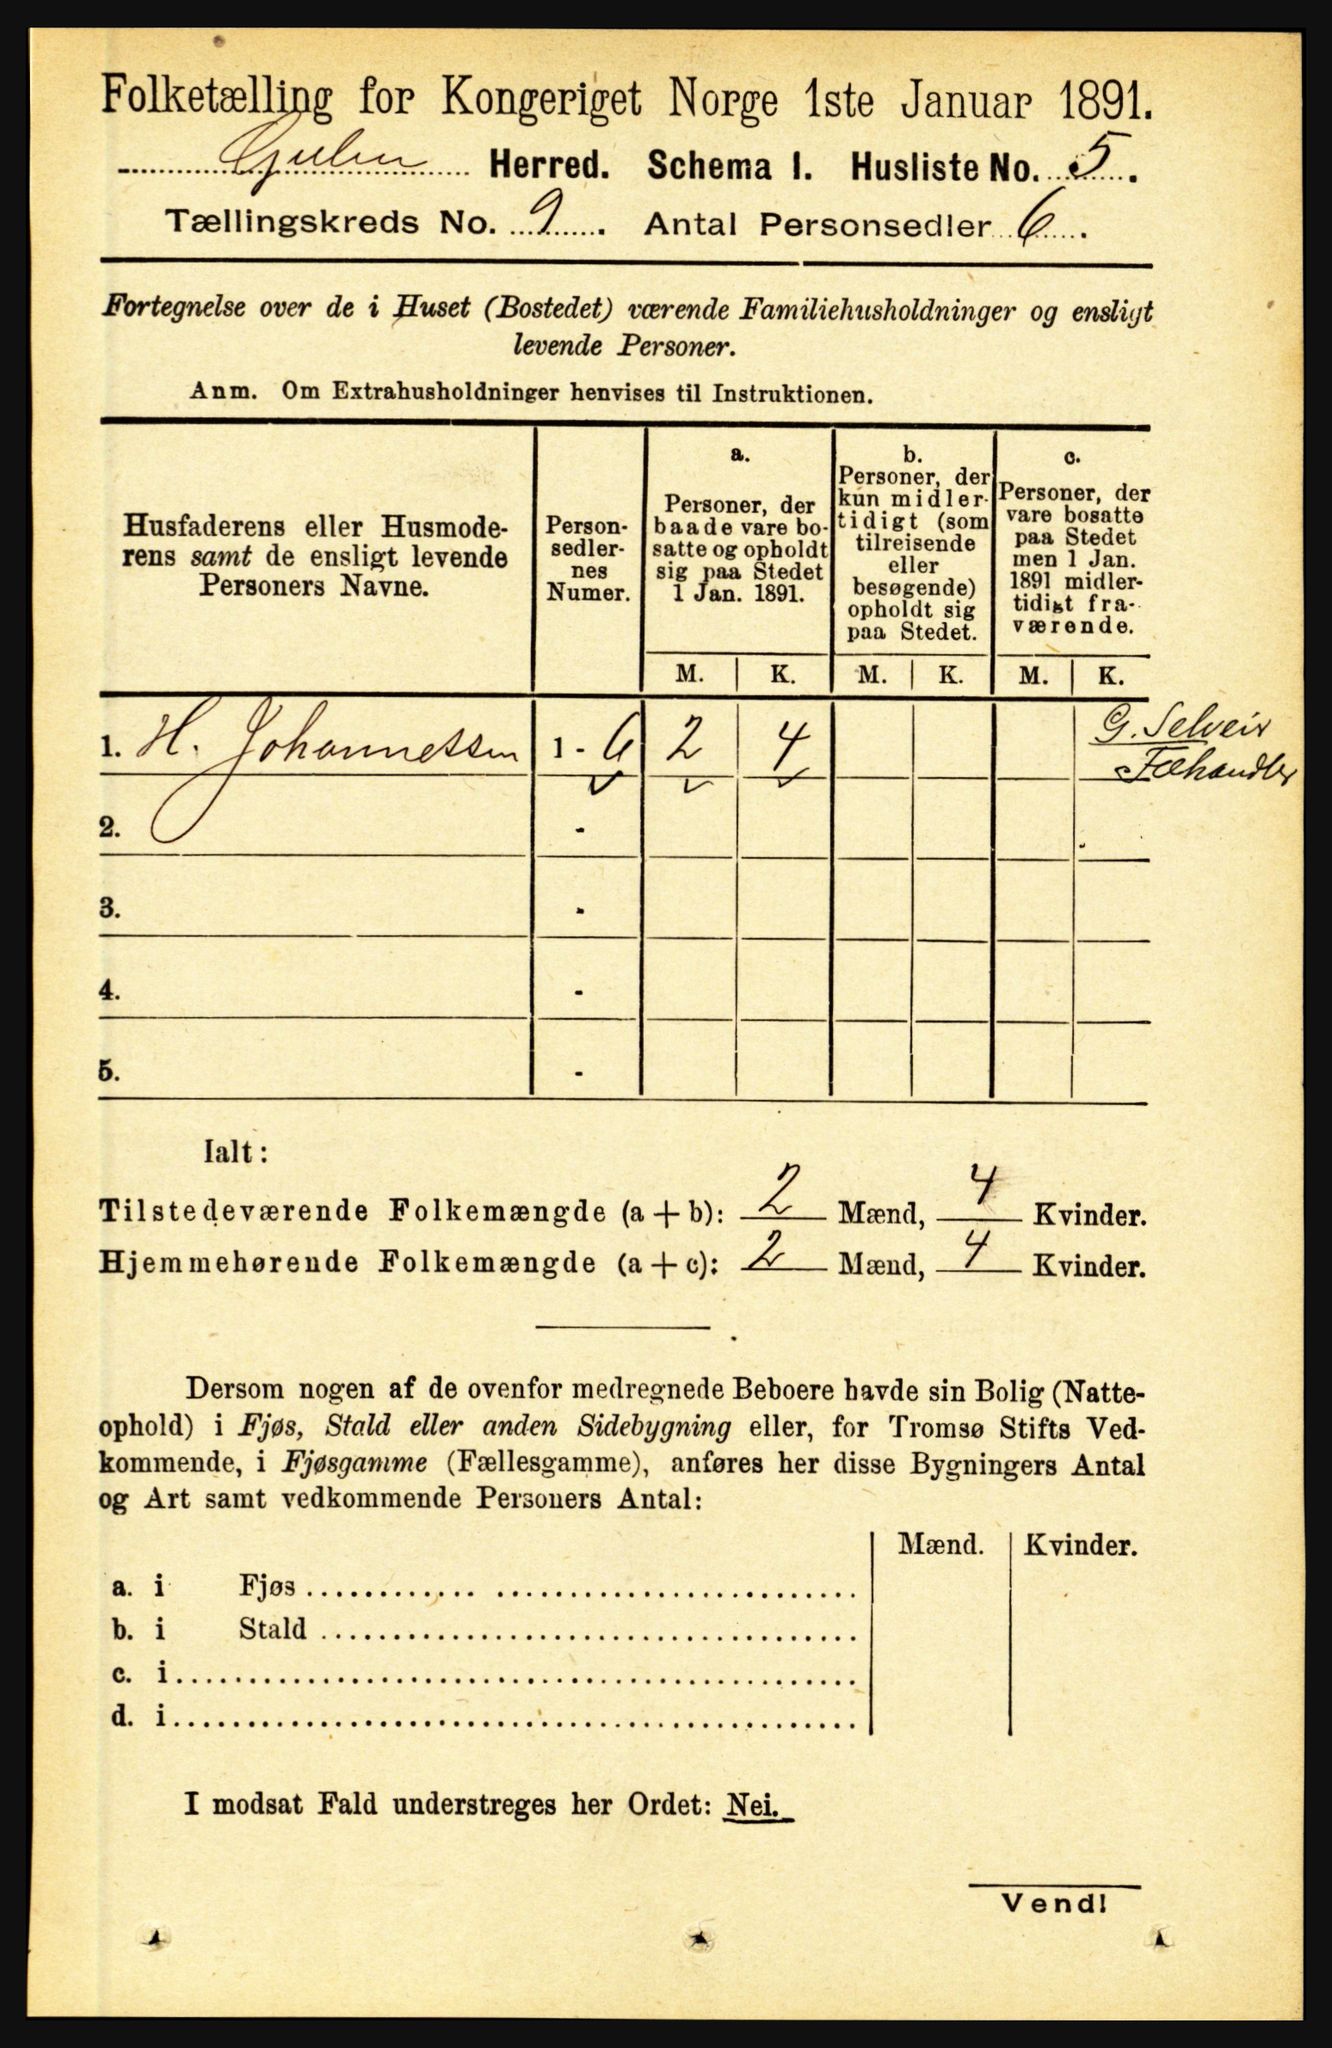 Folketælling for Kongeriget Norge 1ste Januar 1891.
Gulen Herred. Schema I. Husliste No. 5.
Tællingskreds No. 9. Antal Personsedler 6.
Fortegnelse over de i Huset (Bostedet) værende Familiehusholdninger og ensligt
levende Personer.
Anm. Om Extrahusholdninger henvises til Instruktionen.
Husfaderens eller Husmode-
rens samt de ensligt levende
Personers Navne.
Person-
sedler-
nes
Numer.
a.
Personer, der
baade vare bo-
satte og opholdt
sig paa Stedet
1 Jan. 1891.
b.
Personer, der
kun midler-
tidigt (som
tilreisende
eller
besøgende)
opholdt sig
paa Stedet.
c.
Personer, der
vare bosatte
paa Stedet
men 1 Jan.
1891 midler-
tidigt fra-
værende.
M. K. M. K. M. K.
1. H. Johannessen 1 - 6 2 4
G. Selveir
Fæhandler
2. -
3. -
4. -
5. -
Ialt:
Tilstedeværende Folkemængde (a + b): 2 Mænd, 4 Kvinder.
Hjemmehørende Folkemængde (a + c): 2 Mænd, 4 Kvinder.
Dersom nogen af de ovenfor medregnede Beboere havde sin Bolig (Natte-
ophold) i Fjøs, Stald eller anden Sidebygning eller, for Tromsø Stifts Ved-
kommende, i Fjøsgamme (Fællesgamme), anføres her disse Bygningers Antal
og Art samt vedkommende Personers Antal:
Mænd. Kvinder.
a. i Fjøs
b. i Stald
c. i
d. i
I modsat Fald understreges her Ordet: Nei.
Vend!